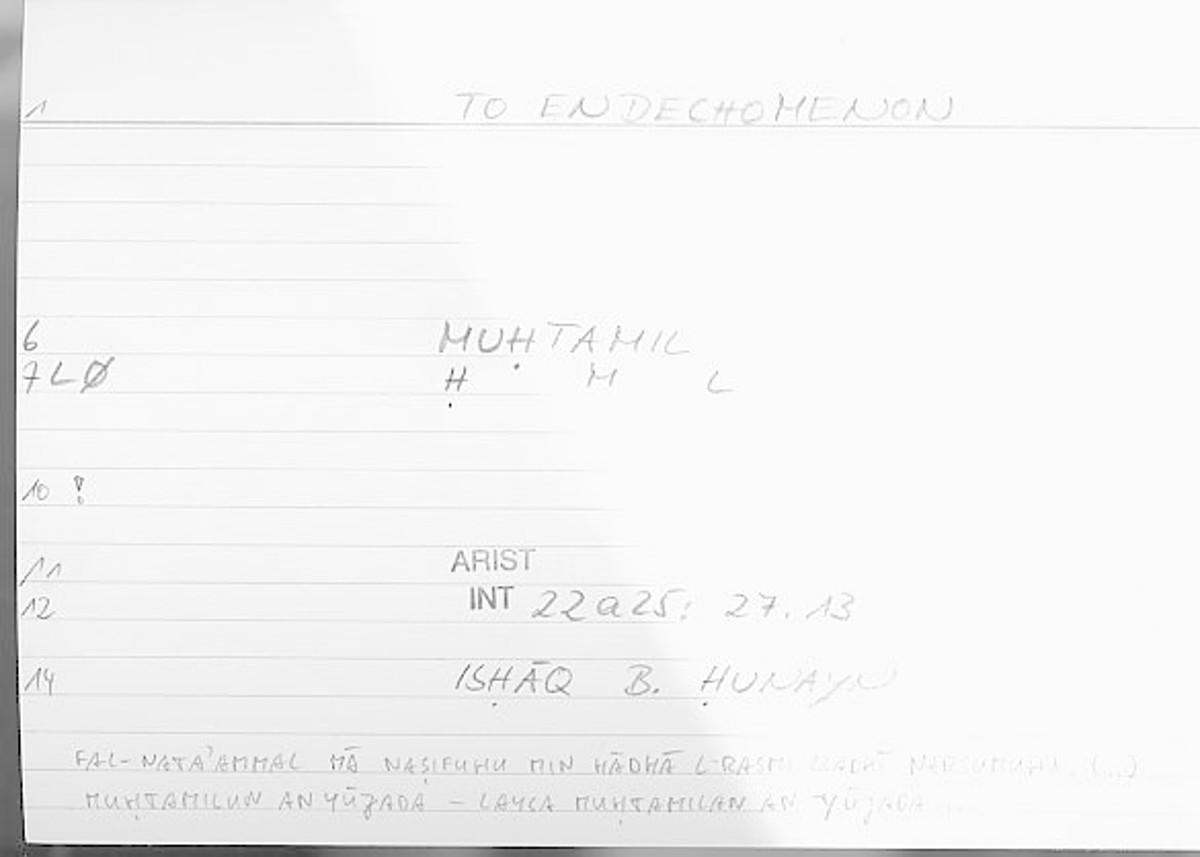 1 TO ENDECHOMENON
6 MUḤTAMIL
7 L Ø Ḥ M L
10 !
11 ARIST
12 INT 22a25: 27.13
14 ISḤĀQ B. ḤUNAYN
FAL-NATA'AMMAL MĀ NAṢIFUHU MIN HĀDHĀ L-RASMI LLADHĪ NARSUMUHU (...)
MUḤTAMILUN AN YŪǦADA – LAYSA MUḤTAMILAN AN YŪǦADA ...